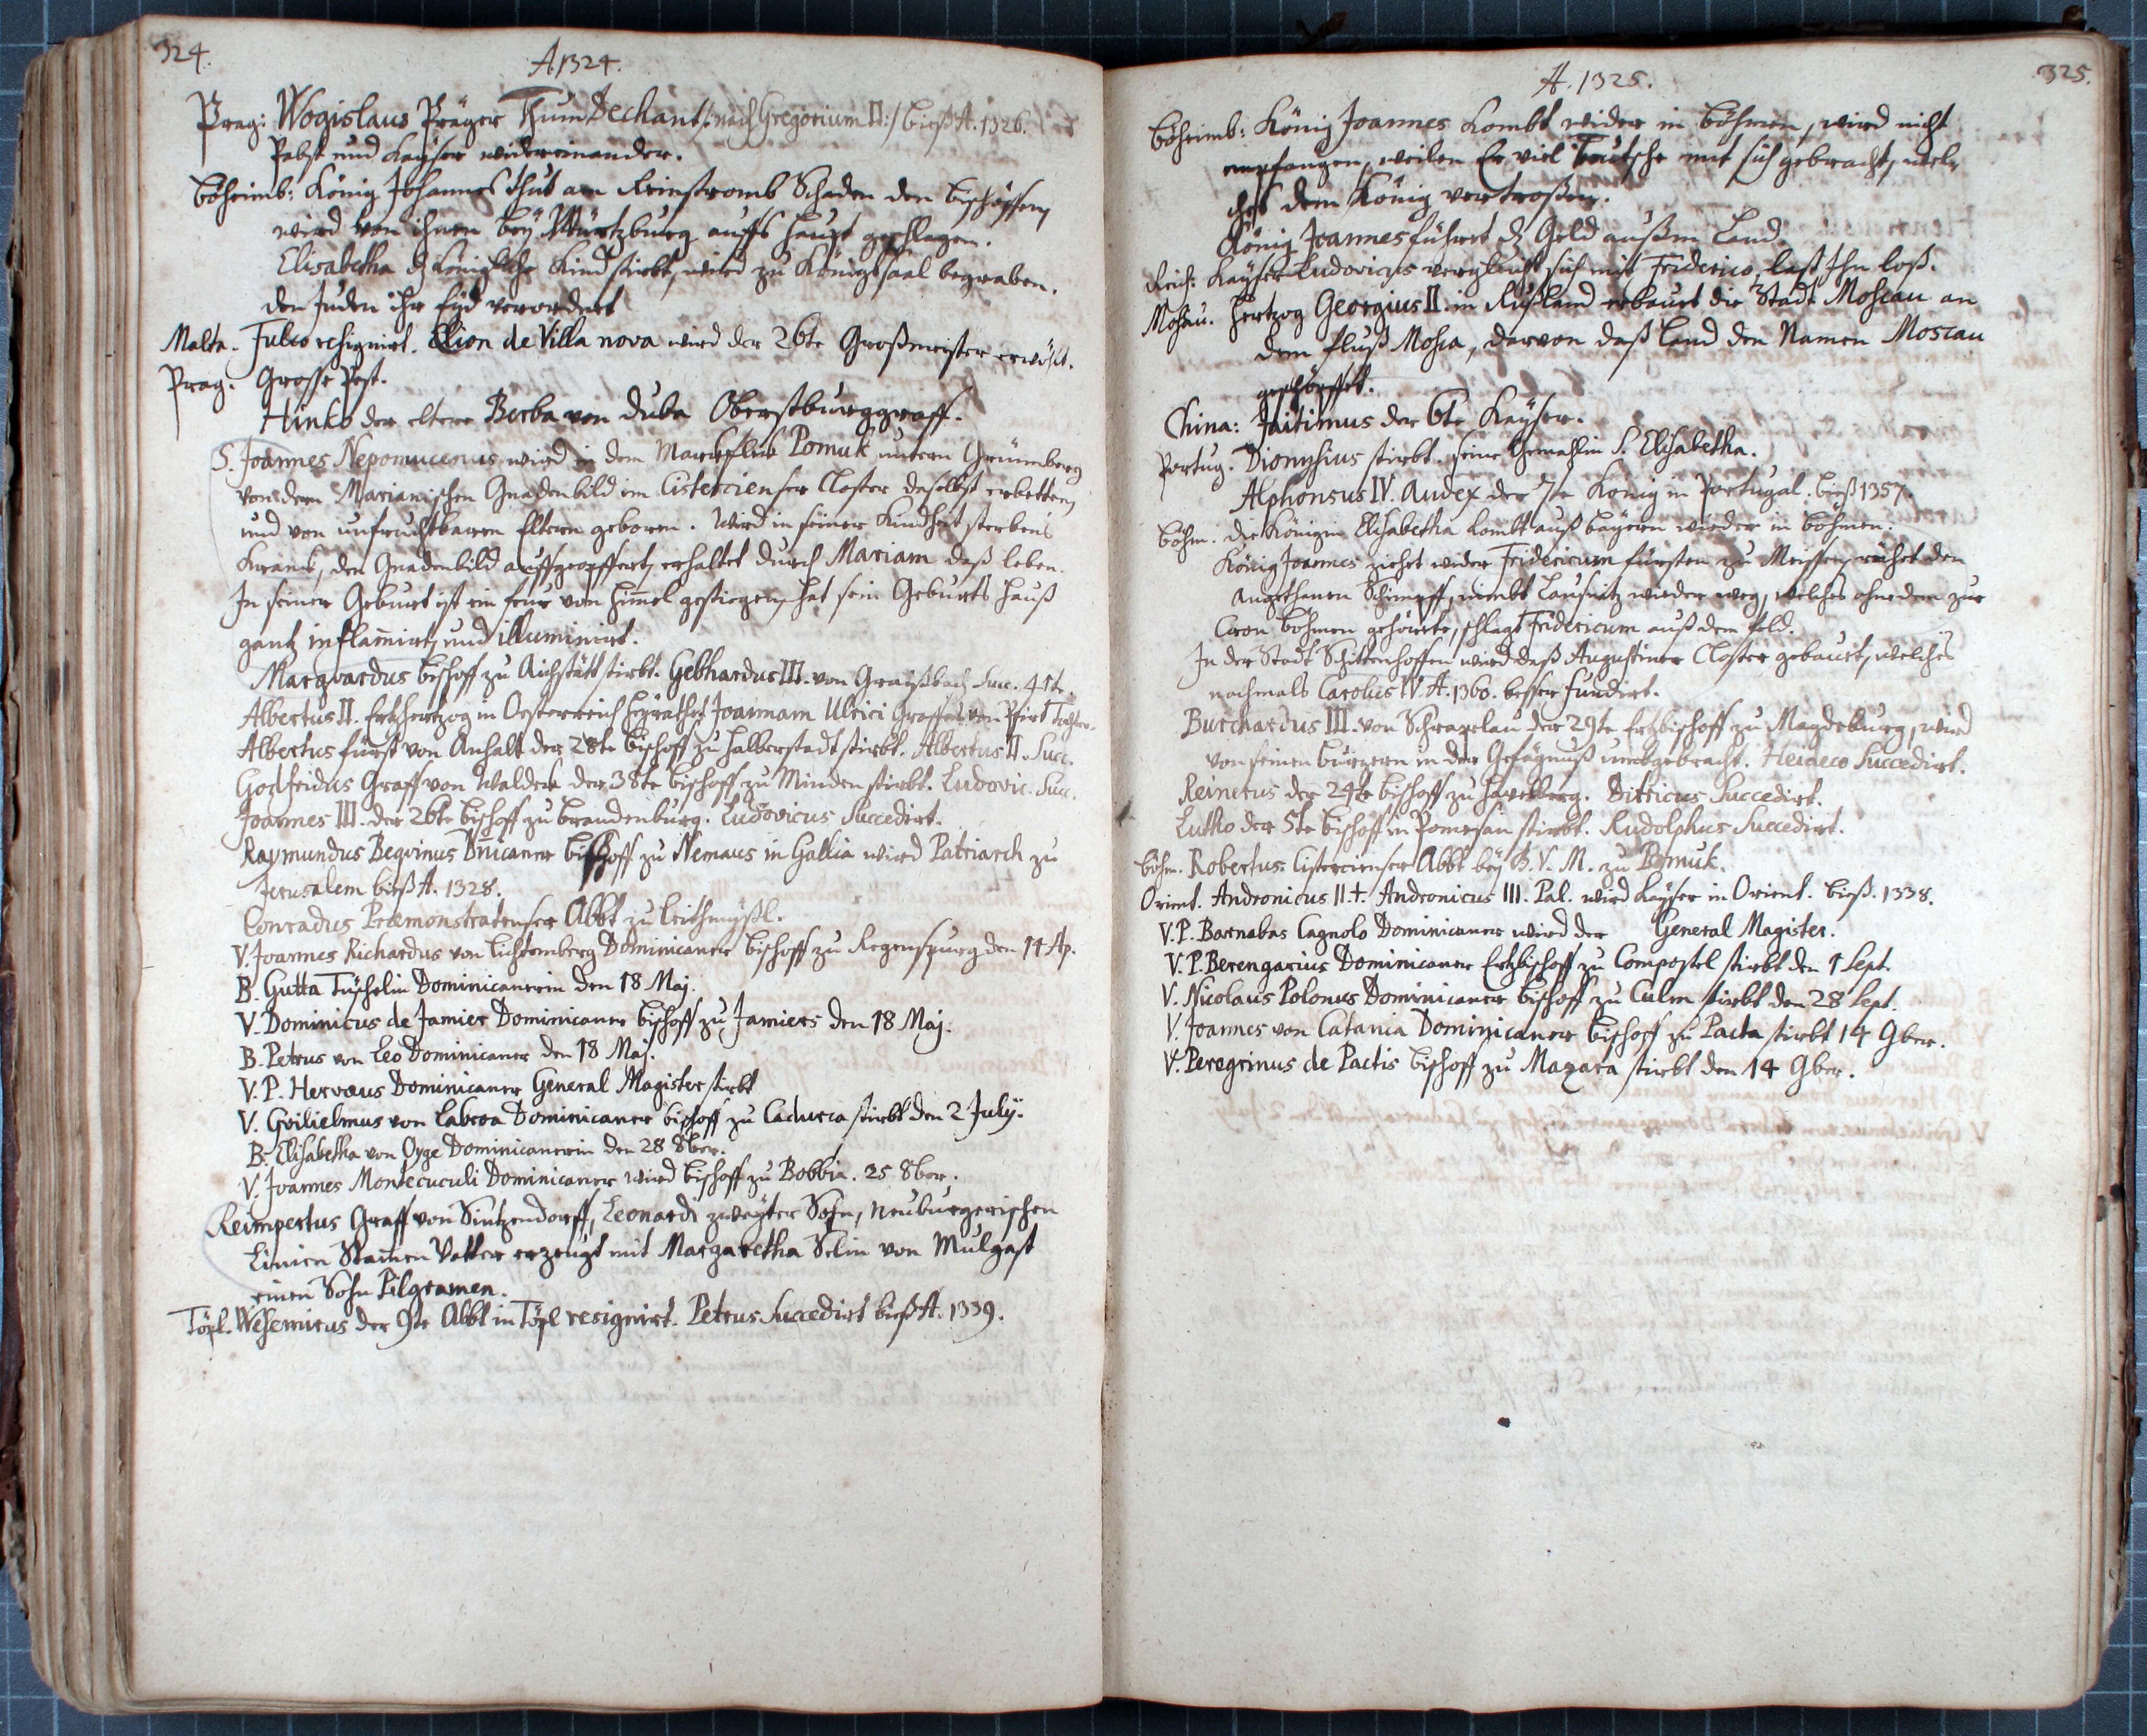 324.
A. 1324.
Prag: Wogislaus Präger ThumDechant /: nach Gregorium II :/ bieß A. 1326.
Pabst und Kayser widereinander.
Böheimb: König Johannes thut am Reinstromb Schaden den Bischöffen,
wird von ihnen bey Würtzburg auffs haupt geschlagen.
Elisabetha dz Königliche Kind stirbt, wird zu Königssaal begraben.
den Juden ihr Eyd verordnet
Malta. Fulco resignirt. Elion de Villa nova wird der 26te Großmeister erwöhlt.
Prag. Grosse Pest.
Hinko der eltere Berba von Duba Oberstburggraff.
S. Joannes Nepomucenus wird in dem Marckflek Pomuk untern Grünnberg
von dem Marianischen Gnadenbild im Cistercienser Closter daselbst erbetten,
und von unfruchtbaren Eltern geboren. Wird in seiner Kindheit sterbens
Kranck, dem Gnadenbild auffgeopffert, erhaltet durch Mariam daß leben.
In seiner Geburt ist ein feur von himmel gestiegen, hat sein Geburts Hauß
gantz inflamirt, und illuminirt.
Marqvardus Bischoff zu Aichstätt stirbt. Gebhardus III. von Graißbach Succ. 41te.
Albertus II. Ertzhertzog in Oesterreich heyrathet Joannam Ulrici Graffens von Pfirt Tochter.
Albertus fürst von Anhalt der 28te Bischoff zu Halberstadt stirbt. Albertus II. Succ.
Godfridus Graff von Waldek der 38te Bischoff zu Minden stirbt. Ludovic. Succ.
Joannes III. der 26te Bischoff zu Brandenburg. Ludovicus Succedirt.
Raymundus Beqvinus Dnicaner Bischoff zu Nemaus in Gallia wird Patriarch zu
Jerusalem bieß A. 1328.
Conradus Præmonstratenser Abbt zu Leithmyßl.
V. Joannes Richardus von Lichtemberg Dominicaner Bischoff zu Regenspurg den 11 Ap.
B. Gutta Tüschelin Dominicanerin den 18 Maj.
V. Dominicus de Jamier Dominicaner Bischoff zu Jamiers den 18 Maj.
B. Petrus von Leo Dominicaner den 18 Maj.
V. P. Hervæus Dominicaner General Magister stirbt
V. Gvilielmus von Labroa Dominicaner Bischoff zu Cadurcia stirbt den 2 July.
B. Elisabetha von Oyge Dominicanerin den 28 8ber.
V. Joannes Montecuculi Dominicaner wird Bischoff zu Bobbia. 25 8ber.
Reimpertus Graff von Sintzendorff, Leonardi zweyter Sohn, Neuburgerischen
Linien Stamen Vatter erzeugt mit Margaretha Selin von Mulgast
einen Sohn Pilgramen.
Töpl. Wesemirus der 9te Abbt in Töpl resignirt. Petrus Succedirt bieß A. 1339.
325.
A. 1325.
Böheimb: König Joannes kombt wider in Böhmen, wird nicht
empfangen, weilen Er viel Teutsche mit sich gebracht, wel-
ches dem König vertroßen.
König Joannes führet dz Geld außm Land.
Reich: Kayser Ludovicus vergleicht sich mit Friderico, last Ihn loß.
Moscau. Hertzog Georgius II. in Rußland erbauet die Stadt Moscau an
dem fluß Mosca, darvon daß Land den Namen Moscau
geschöpffet.
China: Jaitimus der 6te Kayser.
Portug. Dionysius stirbt. seine Gemahlin S. Elisabetha.
Alphonsus IV. Audex der 7te König in Portugal. bieß 1357.
Böhm. die Königin Elisabetha kombt auß Bayern wieder in Böhmen.
König Joannes ziehet wider Fridericum fürsten zu Meissen, rächet den
angethanen Schimpff, nimbt Lausnitz wieder weg, welches ohnedem zur
Cron Böhmen gehörete, schlagt Fridericum auß dem feld.
In der Stadt Schüttenhoffen wird daß Augustiner Closter gebauet, welches
nachmals Carolus IV A. 1360. besser fundirt.
Burchardus III. von Schrapelau der 29te Ertzbischoff zu Magdeburg, wird
von seinen Bürgern in der Gefägnuß umbgebracht. Heideco Succedirt.
Reinerus der 24te Bischoff zu Havelberg. Ditricus Succedirt.
Lutho der 5te Bischoff in Pomesan stirbt. Rudolphus Succedirt.
Böhm. Robertus. Cistercienser Abbt bey B. V. M. zu Pomuk.
Orient. Andronicus II +. Andronicus III. Pal. wird Kayser in Orient. bieß. 1338.
V. P. Barnabas Cagnolo Dominicaner wird der General Magister.
V. P. Berengarius Dominicaner Ertzbischoff zu Compostel stirbt den 1 Sept.
V. Nicolaus Polonus Dominicaner Bischoff zu Culm stirbt den 28 Sept.
V. Joannes von Catania Dominicaner Bischoff zu Pacta stirbt 14 9ber.
V. Peregrinus de Pactis Bischoff zu Mazara stirbt den 14 9ber.